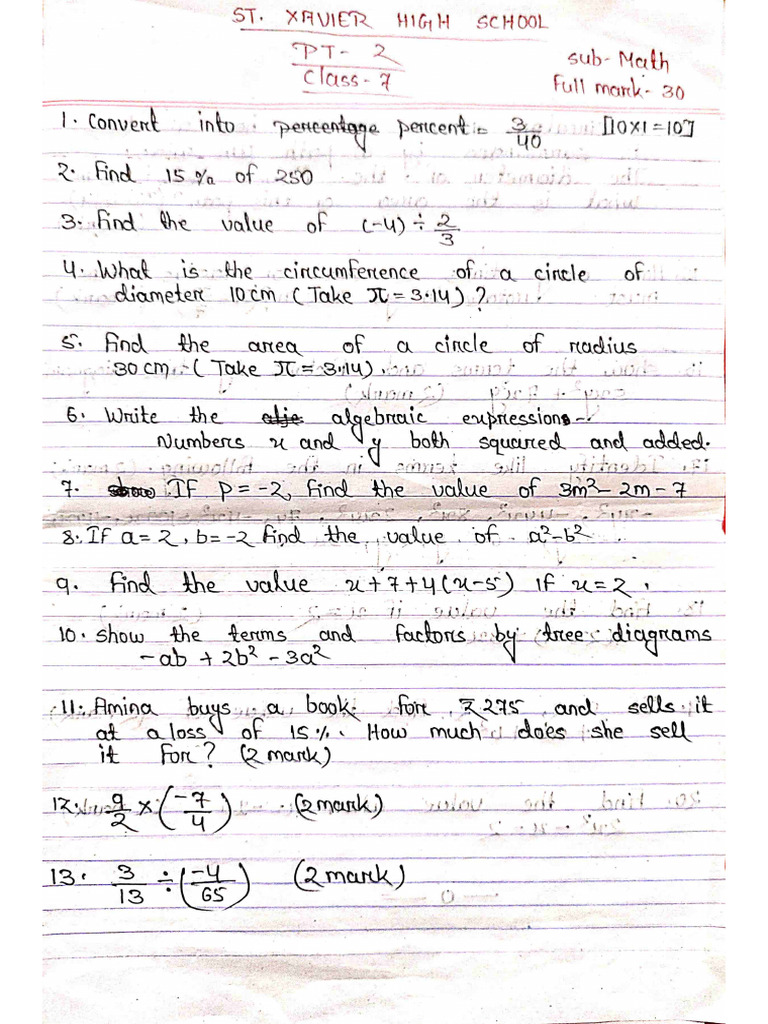 ST. XAVIER HIGH SCHOOL
PT- 2
Class-7
Sub-Math
Full mark-30
1. Convert into percentage percent = 3/40 [10×1=10]
2. Find 15% of 250
3. Find the value of (-4) ÷ 2/3
4. What is the circumference of a circle of
diameter 10cm (Take π = 3.14)?
5. Find the area of a circle of radius
30cm (Take π = 3.14).
6. Write the alje algebraic expressions.
Numbers x and y both squared and added.
7. show If P = -2, find the value of 3m²-2m-7
8. If a=2, b=-2 find the value of a²-b²
9. Find the value x+7+4(x-5) If x=2.
10. Show the terms and factors by tree diagrams
-ab + 2b² - 3a²
11. Amina buys a book for ₹275 and sells it
at a loss of 15%. How much does she sell
it for? (2 mark)
12. 9/2 × (-7/4) (2mark)
13. 3/13 ÷ (-4/65) (2mark)